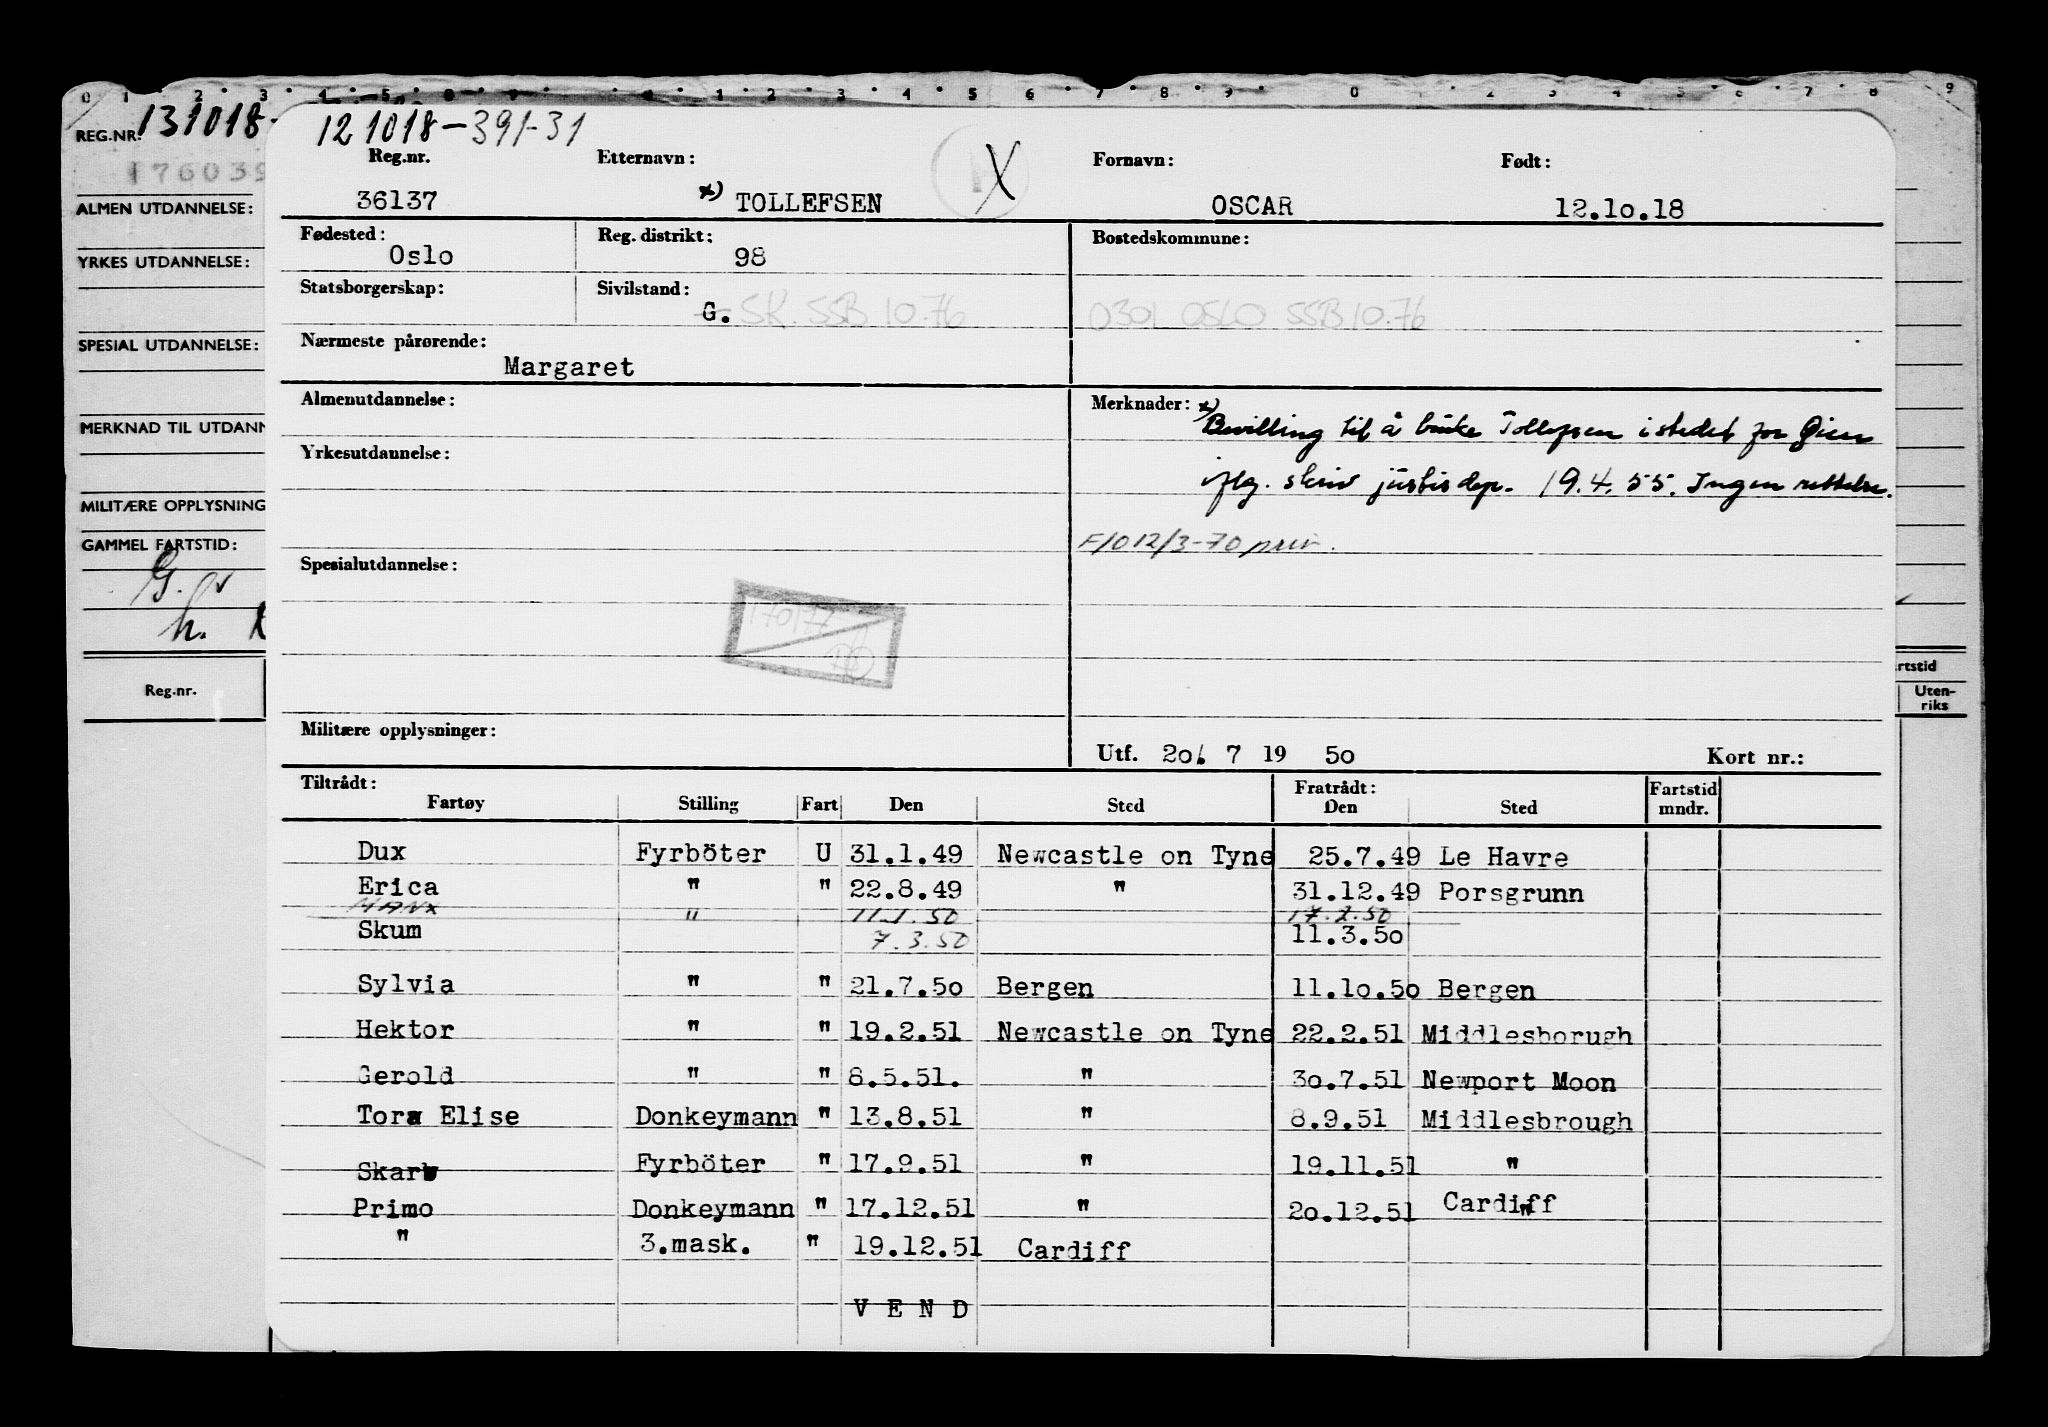 0 1 2 3 4 5 6 7 8 9 0 1 2 3 4 5 6 7 8 9 0 2 3 4 5 6 7 8 9
REG.NR. 131018-
176039
ALMEN UTDANNELSE:
YRKES UTDANNELSE:
SPESIAL UTDANNELSE:
MERKNAD TIL UTDANN
MILITÆRE OPPLYSNING
GAMMEL FARTSTID:
G.
h.
Reg.nr.
121018-391-31
Reg.nr. Etternavn: X Fornavn: Født:
36137 x) TOLLEFSEN OSCAR 12.10.18
Fødested: Reg. distrikt: Bostedskommune:
Oslo 98
Statsborgerskap: Sivilstand:
G. SK. SSB 10.76 0301 OSLO SSB 10.76
Nærmeste pårørende:
Margaret
Almenutdannelse: Merknader: x)
Bevilling til å bruke Tollefsen istedet for Øien
Yrkesutdannelse:
iflg. skriv justisdep. 19.4.55. Ingen rettelse.
F/O 12/3-70 priv.
Spesialutdannelse:
170177
Militære opplysninger:
Utf. 20. 7 19 50 Kort nr.:
Tiltrådt: Fratrådt: Fartstid
Fartøy Stilling Fart Den Sted Den Sted mndr.
Dux Fyrböter U 31.1.49 Newcastle on Tyne 25.7.49 Le Havre
Erica " " 22.8.49 " 31.12.49 Porsgrunn
MANX " 11.1.50 17.2.50
Skum 7.3.50 11.3.50
Sylvia " " 21.7.50 Bergen 11.10.50 Bergen
Hektor " " 19.2.51 Newcastle on Tyne 22.2.51 Middlesborugh
Gerold " " 8.5.51. " 30.7.51 Newport Moon
Tora Elise Donkeymann " 13.8.51 " 8.9.51 Middlesbrough
Skarb Fyrböter " 17.9.51 " 19.11.51 "
Primo Donkeymann " 17.12.51 " 20.12.51 Cardiff
" 3.mask. " 19.12.51 Cardiff
V E N D
rtstid
Uten-
riks